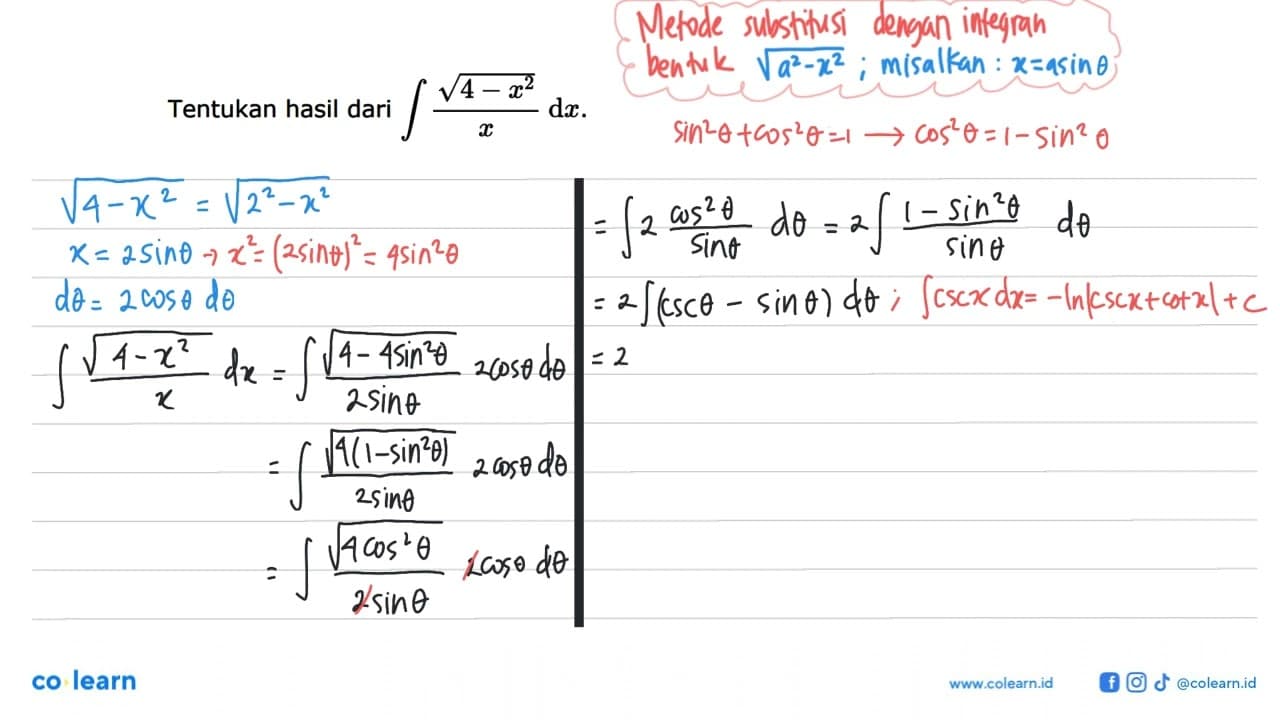 Metode substitusi dengan integran
bentuk √(a²-x²) ; misalkan : x=asinθ
Tentukan hasil dari ∫ √(4 − x²)/x dx.
sin²θ+cos²θ=1 → cos²θ=1-sin²θ
√(4-x²) = √(2²-x²)
x = 2sinθ → x²=(2sinθ)²=4sin²θ
dθ= 2cosθ dθ
∫ √(4-x²)/x dx = ∫ √(4-4sin²θ)/2sinθ 2cosθ dθ
= ∫ √(4(1-sin²θ))/2sinθ 2cosθ dθ
= ∫ √(4cos²θ)/2sinθ 2cosθ dθ
= ∫ 2 cos²θ/sinθ dθ = 2∫ (1-sin²θ)/sinθ dθ
= 2∫(cscθ - sinθ) dθ ; ∫cscx dx= -ln|cscx+cotx|+c
= 2
co learn
www.colearn.id
@colearn.id